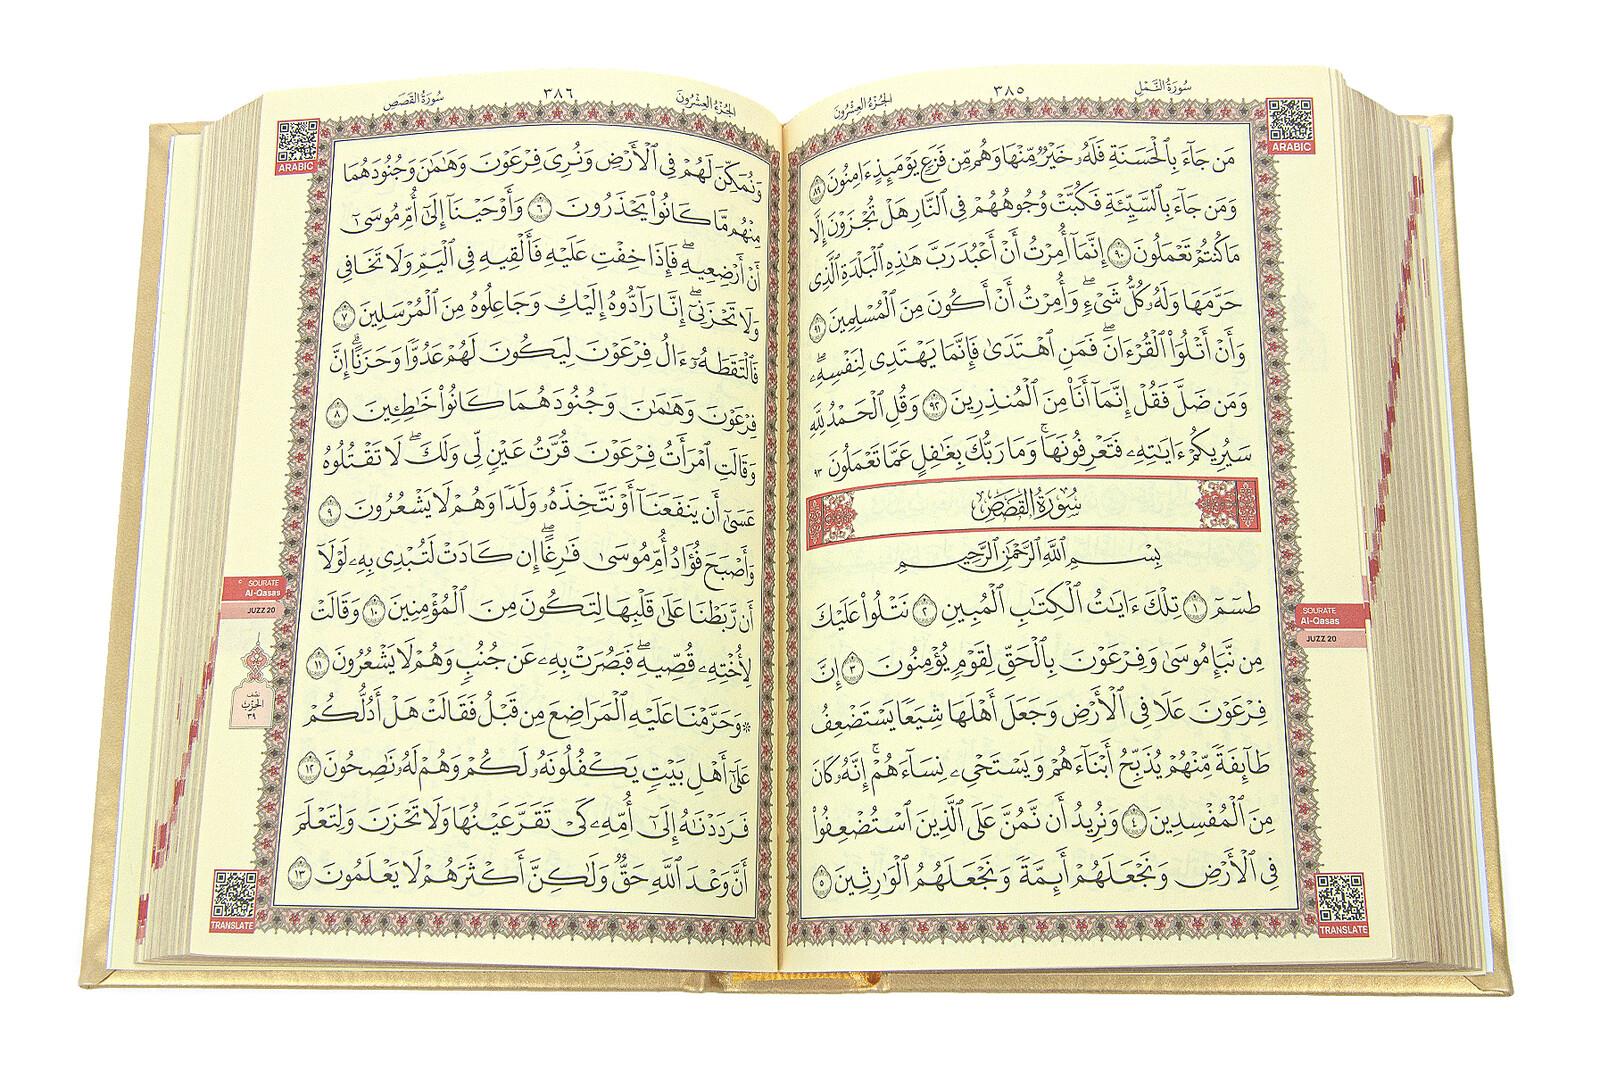 سُورَةُ النَّمْلِ
٣٨٥
الجُزْءُ العِشْرُونَ
ARABIC
مَن جَآءَ بِٱلْحَسَنَةِ فَلَهُۥ خَيْرٌ مِّنْهَا وَهُم مِّن فَزَعٍ يَوْمَئِذٍ ءَامِنُونَ ٨٩
وَمَن جَآءَ بِٱلسَّيِّئَةِ فَكُبَّتْ وُجُوهُهُمْ فِي ٱلنَّارِ هَلْ تُجْزَوْنَ إِلَّا
مَا كُنتُمْ تَعْمَلُونَ ٩٠ إِنَّمَآ أُمِرْتُ أَنْ أَعْبُدَ رَبَّ هَٰذِهِ ٱلْبَلْدَةِ ٱلَّذِي
حَرَّمَهَا وَلَهُۥ كُلُّ شَيْءٍۖ وَأُمِرْتُ أَنْ أَكُونَ مِنَ ٱلْمُسْلِمِينَ ٩١
وَأَنْ أَتْلُوَا۟ ٱلْقُرْءَانَۖ فَمَنِ ٱهْتَدَىٰ فَإِنَّمَا يَهْتَدِي لِنَفْسِهِۦۖ
وَمَن ضَلَّ فَقُلْ إِنَّمَآ أَنَا۠ مِنَ ٱلْمُنذِرِينَ ٩٢ وَقُلِ ٱلْحَمْدُ لِلَّهِ
سَيُرِيكُمْ ءَايَٰتِهِۦ فَتَعْرِفُونَهَاۚ وَمَا رَبُّكَ بِغَٰفِلٍ عَمَّا تَعْمَلُونَ ٩٣
سُورَةُ القَصَصِ
بِسْمِ ٱللَّهِ ٱلرَّحْمَٰنِ ٱلرَّحِيمِ
طسٓمٓ ١ تِلْكَ ءَايَٰتُ ٱلْكِتَٰبِ ٱلْمُبِينِ ٢ نَتْلُوا۟ عَلَيْكَ
مِن نَّبَإِ مُوسَىٰ وَفِرْعَوْنَ بِٱلْحَقِّ لِقَوْمٍ يُؤْمِنُونَ ٣ إِنَّ
فِرْعَوْنَ عَلَا فِي ٱلْأَرْضِ وَجَعَلَ أَهْلَهَا شِيَعًا يَسْتَضْعِفُ
طَآئِفَةً مِّنْهُمْ يُذَبِّحُ أَبْنَآءَهُمْ وَيَسْتَحْيِۦ نِسَآءَهُمْۚ إِنَّهُۥ كَانَ
مِنَ ٱلْمُفْسِدِينَ ٤ وَنُرِيدُ أَن نَّمُنَّ عَلَى ٱلَّذِينَ ٱسْتُضْعِفُوا۟
فِي ٱلْأَرْضِ وَنَجْعَلَهُمْ أَئِمَّةً وَنَجْعَلَهُمُ ٱلْوَٰرِثِينَ ٥
SOURATE
Al-Qasas
JUZZ 20
TRANSLATE
الجُزْءُ العِشْرُونَ
٣٨٦
سُورَةُ القَصَصِ
ARABIC
وَنُمَكِّنَ لَهُمْ فِي ٱلْأَرْضِ وَنُرِيَ فِرْعَوْنَ وَهَٰمَٰنَ وَجُنُودَهُمَا
مِنْهُم مَّا كَانُوا۟ يَحْذَرُونَ ٦ وَأَوْحَيْنَآ إِلَىٰٓ أُمِّ مُوسَىٰٓ
أَنْ أَرْضِعِيهِۖ فَإِذَا خِفْتِ عَلَيْهِ فَأَلْقِيهِ فِي ٱلْيَمِّ وَلَا تَخَافِي
وَلَا تَحْزَنِيٓۖ إِنَّا رَآدُّوهُ إِلَيْكِ وَجَاعِلُوهُ مِنَ ٱلْمُرْسَلِينَ ٧
فَٱلْتَقَطَهُۥٓ ءَالُ فِرْعَوْنَ لِيَكُونَ لَهُمْ عَدُوًّا وَحَزَنًاۗ إِنَّ
فِرْعَوْنَ وَهَٰمَٰنَ وَجُنُودَهُمَا كَانُوا۟ خَٰطِـِٔينَ ٨
وَقَالَتِ ٱمْرَأَتُ فِرْعَوْنَ قُرَّتُ عَيْنٍ لِّي وَلَكَۖ لَا تَقْتُلُوهُ
عَسَىٰٓ أَن يَنفَعَنَآ أَوْ نَتَّخِذَهُۥ وَلَدًا وَهُمْ لَا يَشْعُرُونَ ٩
وَأَصْبَحَ فُؤَادُ أُمِّ مُوسَىٰ فَٰرِغًاۖ إِن كَادَتْ لَتُبْدِي بِهِۦ لَوْلَآ
أَن رَّبَطْنَا عَلَىٰ قَلْبِهَا لِتَكُونَ مِنَ ٱلْمُؤْمِنِينَ ١٠ وَقَالَتْ
لِأُخْتِهِۦ قُصِّيهِۖ فَبَصُرَتْ بِهِۦ عَن جُنُبٍ وَهُمْ لَا يَشْعُرُونَ ١١
۞وَحَرَّمْنَا عَلَيْهِ ٱلْمَرَاضِعَ مِن قَبْلُ فَقَالَتْ هَلْ أَدُلُّكُمْ
عَلَىٰٓ أَهْلِ بَيْتٍ يَكْفُلُونَهُۥ لَكُمْ وَهُمْ لَهُۥ نَٰصِحُونَ ١٢
فَرَدَدْنَٰهُ إِلَىٰٓ أُمِّهِۦ كَيْ تَقَرَّ عَيْنُهَا وَلَا تَحْزَنَ وَلِتَعْلَمَ
أَنَّ وَعْدَ ٱللَّهِ حَقٌّ وَلَٰكِنَّ أَكْثَرَهُمْ لَا يَعْلَمُونَ ١٣
SOURATE
Al-Qasas
JUZZ 20
نِصْف
الحِزْبِ
٣٩
TRANSLATE